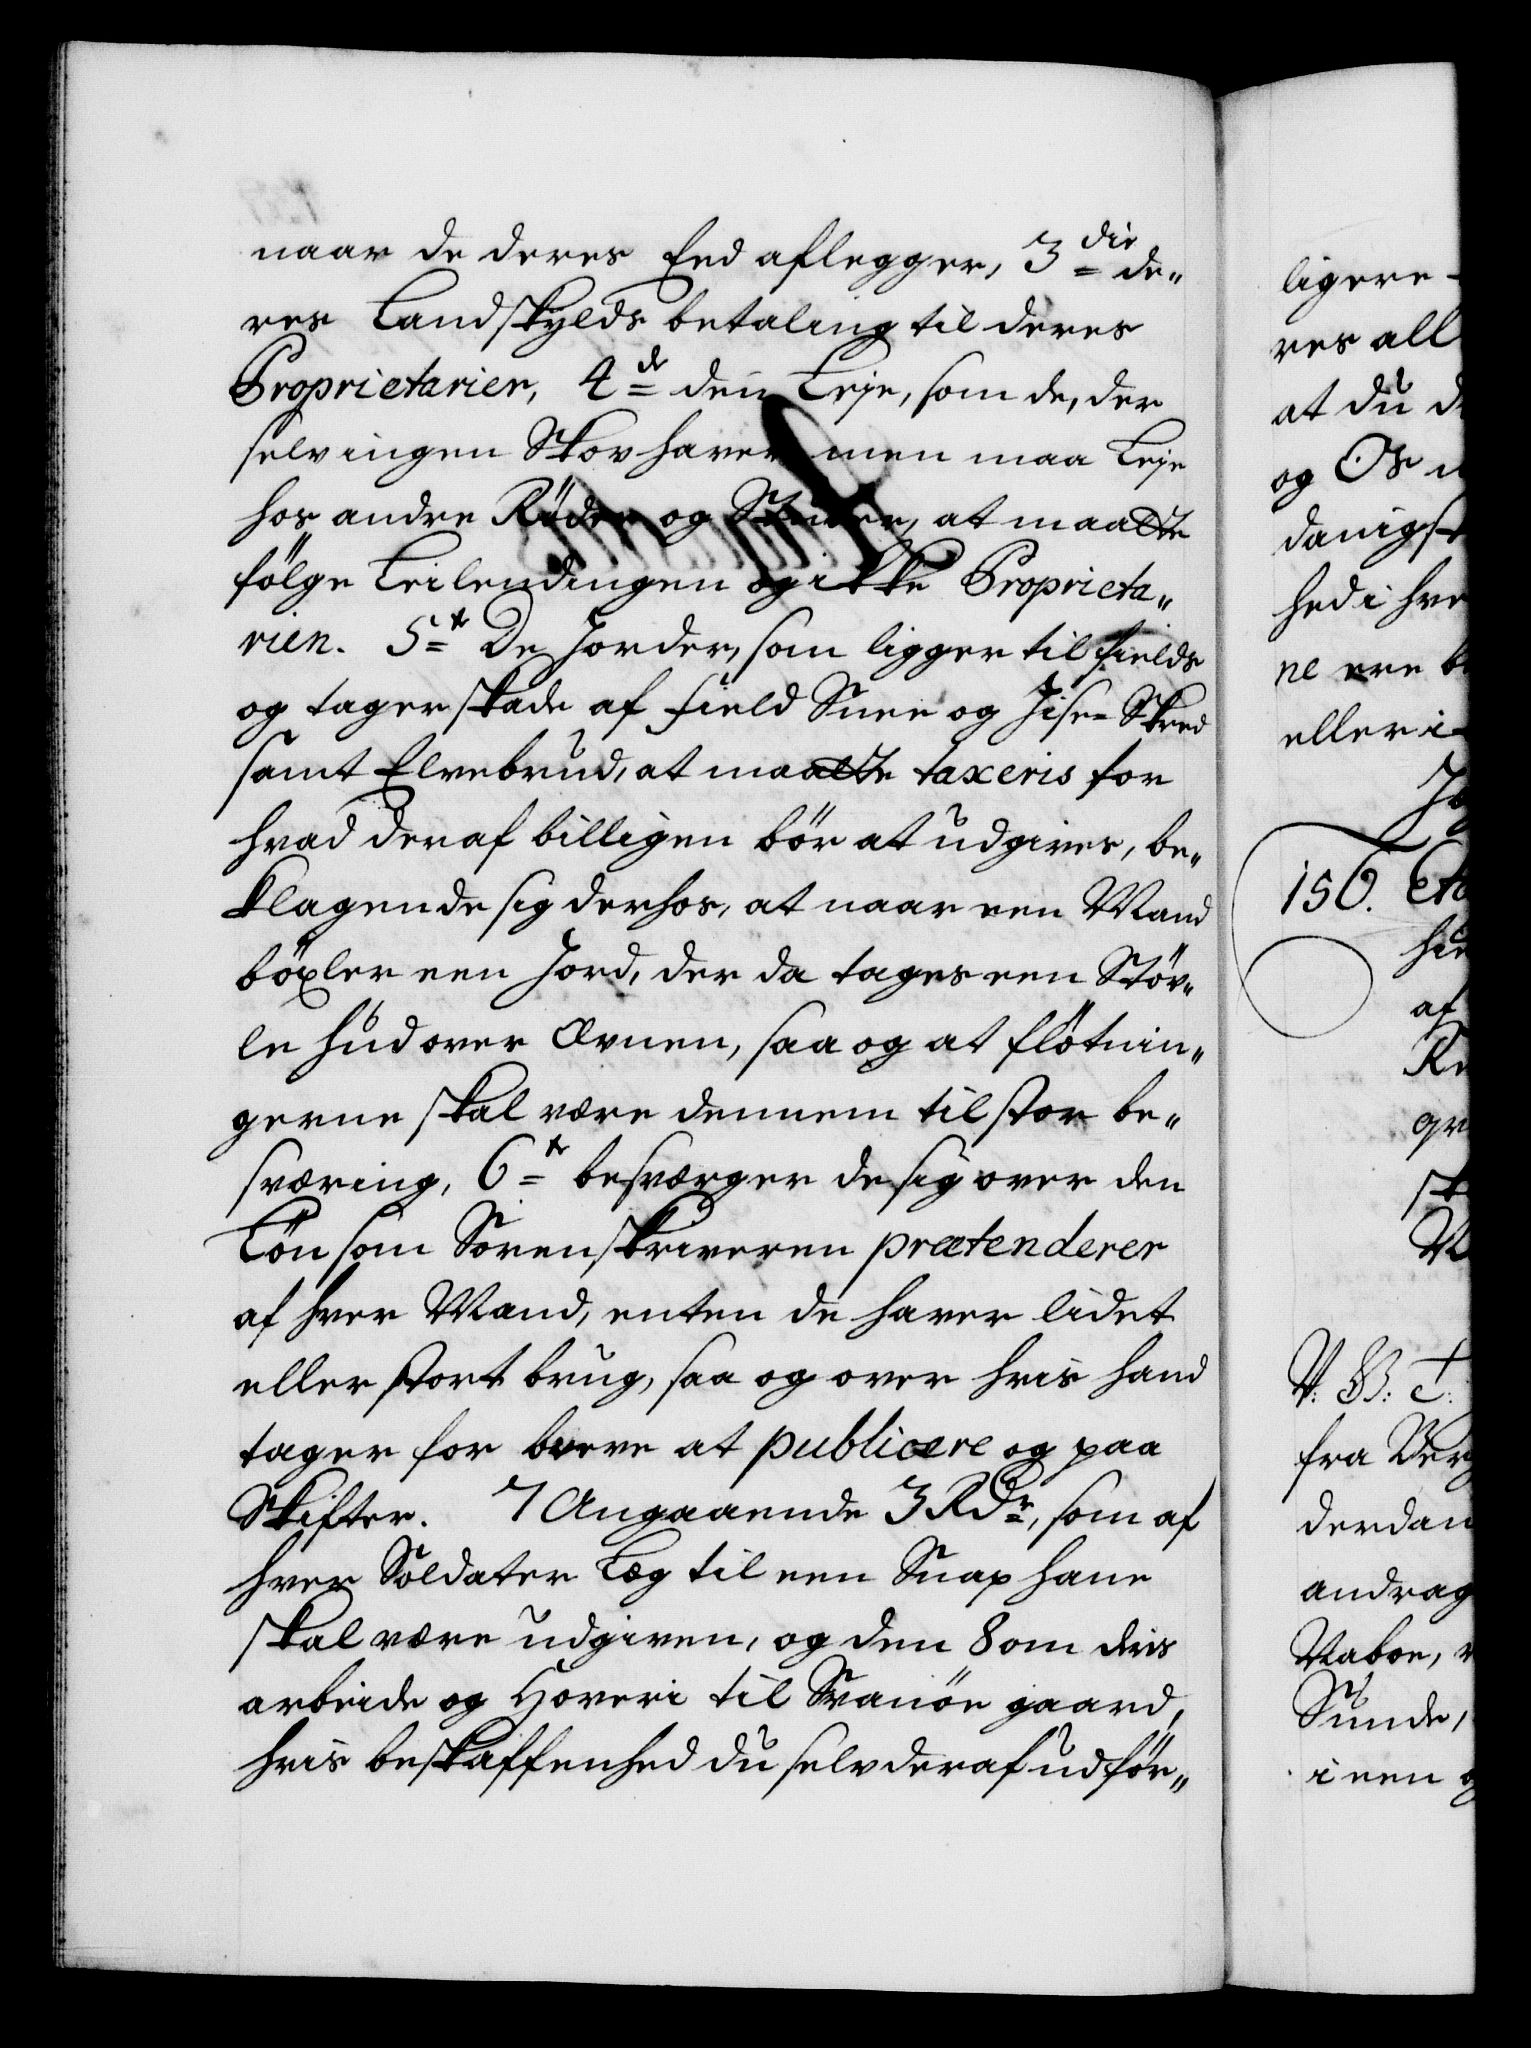 naar de deres Eed aflegger, 3die de„
res Landskylds betaling til deres
Proprietarier, 4de den Leje, som de, der
selv ingen Skov haver men maa Leje
hos andre Röder og at maatte
følge Leilendingen og ikke Proprieta„
rien. 5te De Jorder, som ligger til Fields
og tager skade af Field Snee og Jise-Skred
samt Elvebrud, at maatte taxeris for
hvad deraf billigen bör at udgives, be„
klagende sig derhos, at naar een Mand
böxler een Jord, der da tages een Stöv„
le hud overÆvnen, saa og at flötnin„
gerne skal være dennem til stor be„
sværing, 6te besværger de sig over den
Lön som Sorenskriveren prætenderer
af hver Mand, enten de haver lidet
eller stort brug, saa og over hvis hand
tager for breve at publicere og paa
Skifter. 7 Angaaende 3 Rdr, som af
hver Soldater Læg til een Snaphane
skal være udgiven, og den 8 om deris
arbeide og Hoveri til Svanöe gaard,
hvis beskaffenhed du selv deraf udför„
ligere
res all
at du
og Os
danigst
hed i hve
ne ere
eller i
156.
af
V: B: T:
fra Ber
derdan
andrag
Naboe,
Sunde,
i een